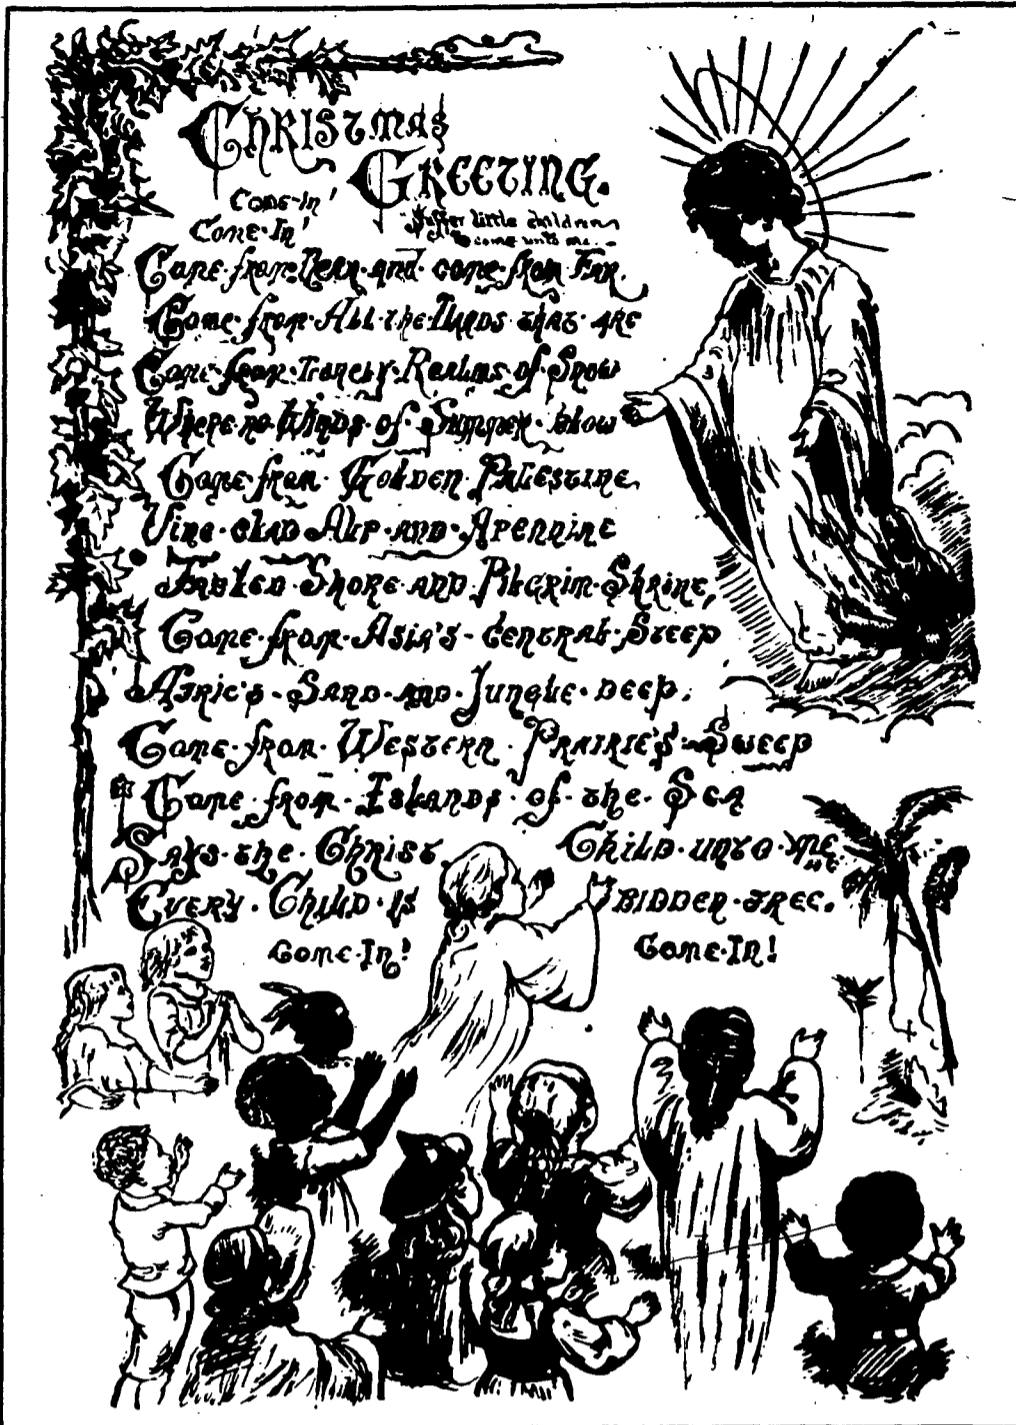 CHRISTMAS
GREETING.
Come-In!
Come-In!
"Suffer little children
to come unto me.-
Come from Near and come from Far.
Come from All the Lands that are
Come from Realms of Snow
Where no Winds of Summer blow
Come from Golden Palestine,
Vine clad Alp and Apennine
Fabled Shore and Pilgrim Shrine,
Come from Asia's central Steep
Afric's Sand and Jungle deep,
Come from Western Prairie's Sweep
Come from Islands of the Sea
Says the Christ Child unto me
Every Child is bidden free.
Come In! Come In!